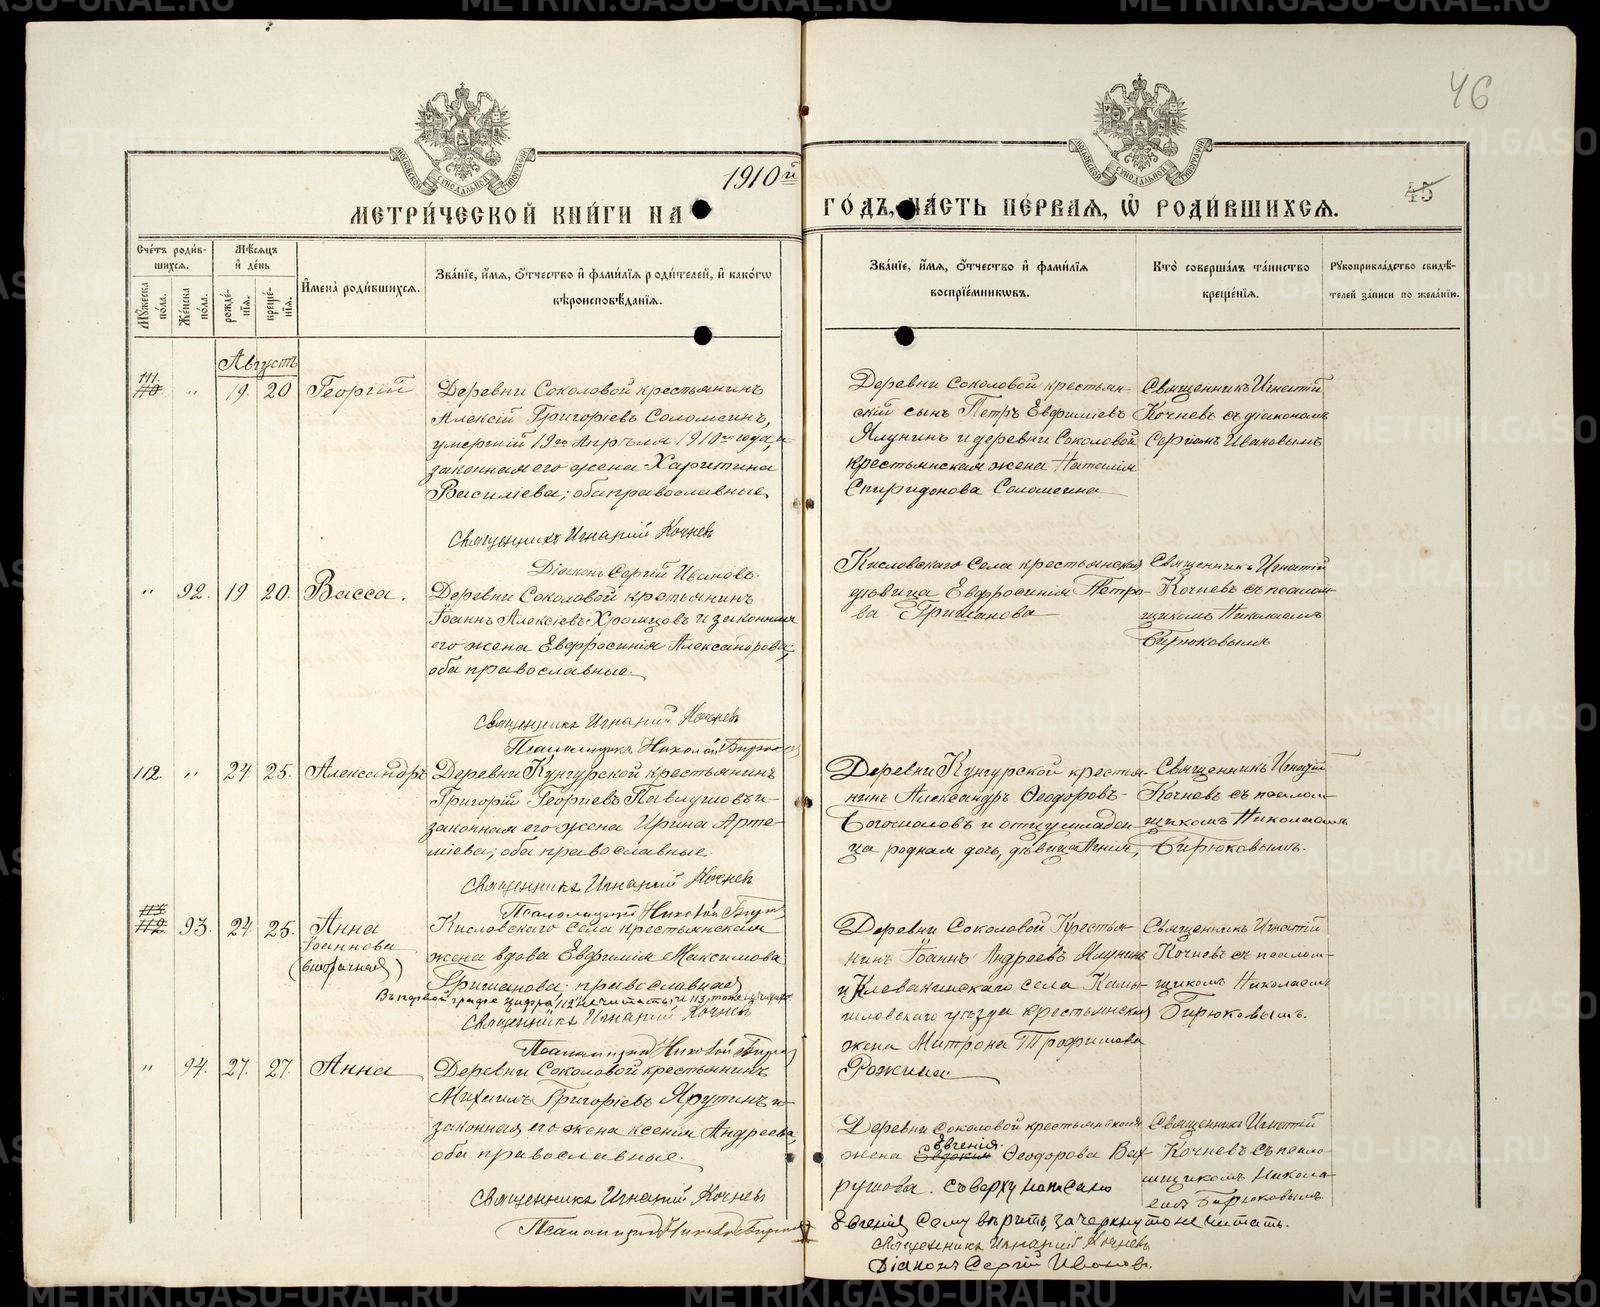 46
45
1910й
МЕТРИ́ЧЕСКОЙ КНИ́ГИ НА
ГО́ДЪ, ЧА́СТЬ ПЕ́РВАЯ, Ѡ РОДИ́ВШИХСЯ.
Сче́тъ роди́в-
шихся.
Мужеска по́ла.
Же́нска по́ла.
Мѣ́сяцъ
и҆ де́нь
рожде́-
нїя.
креще́-
нїя.
И҆мена̀ роди́вшихся.
Зва́нїе, и҆́мя, ѻ҆́тчество и҆ фами́лїя роди́телей, и҆ како́гѡ
вѣроисповѣ́данїя.
Зва́нїе, и҆́мя, ѻ҆́тчество и҆ фами́лїя
воспрїе́мниковъ.
Кто̀ соверша́лъ та́инство
креще́нїя.
Рꙋкоприкла́дство свидѣ́-
телей за́писи по жела́нїю.
Августъ
111.
110.
"
19
20
Георгій
Деревни Соколовой крестьянинъ
Алексій Григоріевъ Соломеинъ,
умершій 19го Апрѣля 1910го года, и
законная его жена Харитина
Василіева; оба православные
Священникъ Игнатій Кочневъ
Діаконъ Сергій Ивановъ.
Деревни Соколовой крестьян-
скій сынъ Петръ Евфиміевъ
Ялунинъ и деревни Соколовой
крестьянская жена Наталія
Спиридонова Соломеина
Священникъ Игнатій
Кочневъ съ діакономъ
Сергіемъ Ивановымъ
"
92.
19
20.
Васса.
Деревни Соколовой крестьянинъ
Іоаннъ Алексіевъ Хромцовъ и законная
его жена Евфросинія Александрова;
оба православные.
Священникъ Игнатій Кочневъ
Псаломщикъ Николай
Кисловскаго села крестьянская
дѣвица Евфросинія Петро-
ва Гришанова
Священникъ Игнатій
Кочневъ съ псалом-
щикомъ Николаемъ
Бирюковымъ
112.
"
24.
25.
Александръ
Деревни Кунгурской крестьянинъ
Григорій Георгіевъ Павлушовъ и
законная его жена Ирина Арте-
міева; оба православные.
Священникъ Игнатій Кочневъ
Псаломщикъ Николай
Деревни Кунгурской крестья-
нинъ Александръ Ѳеодоровъ
Богомоловъ и отцу младен-
ца родная дочь, дѣвица Агнія,
Священникъ Игнатій
Кочневъ съ псалом-
щикомъ Николаемъ
Бирюковымъ.
113.
112.
93.
24.
25.
Анна
Іоаннова
(внебрачная)
Кисловскаго села крестьянская
жена вдова Евфимія Максимова
Гришанова; православная
Въ первой графѣ цифры 112 не читать и 113 тоже
Священникъ Игнатій Кочневъ
Псаломщикъ Николай
Деревни Соколовой Крестья-
нинъ Іоаннъ Андреевъ Ялунинъ
и Клевакинскаго села Камы-
шловскаго уѣзда крестьянская
жена Митрона Трофимова
Рожина.
Священникъ Игнатій
Кочневъ съ псалом-
щикомъ Николаемъ
Бирюковымъ.
"
94.
27.
27.
Анна
Деревни Соколовой крестьянинъ
Михаилъ Григоріевъ Ярутинъ и
законная его жена Ксенія Андреева,
оба православные.
Священникъ Игнатій Кочневъ
Псаломщикъ Николай
Деревни Соколовой крестьянская
Евгенія.
жена Евдокія Ѳеодорова Вах-
рушова. Сверху написано
Евгенія сему вѣрить, зачеркнуто не читать.
Священникъ Игнатій Кочневъ
Діаконъ Сергій Ивановъ.
Священникъ Игнатій
Кочневъ съ псало-
мщикомъ Никола-
емъ Бирюковымъ.
METRIKI.GASO-URAL.RU